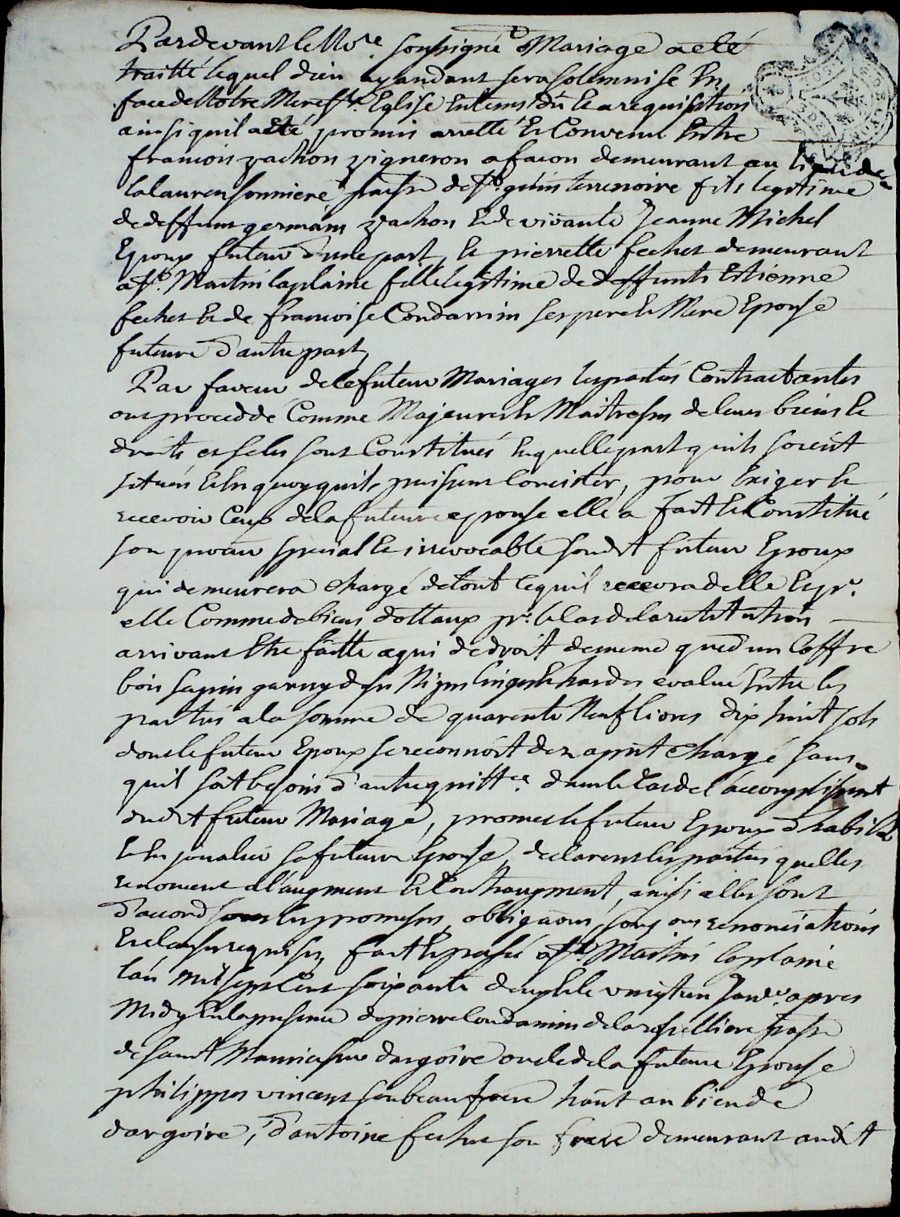 Pardevant le No.re soussigné Mariage a eté
traitté lequel dieu aydandant sera solemnisé En
face de Notre Mere Ste Eglise En tems dû Et a requisition
ainsi quil a eté promis arretté Et Convenu Entre
francois zachon vigneron a facon demeurant au lieu de
la laurensonniere parsse de St quin terrenoire fils legitime
de deffunt germain zachon Et de vivante Jeanne Michel
Epoux futeur d'une part, Et pierrette fechet demeurant
a St. Martin laplaine fille legitime de deffunts Estienne
fechet Et de francoise Condamin ses pere Et Mere Epouse
future d'autre part,
Par faveur de ce futeur Mariages les parties Contractantes
ont procedde Comme Majeures Et Maitresses de leurs biens Et
droits et se les sont Constitués En quelle part quils soient
situés Et En quoy quils puissent Concister, pour Exiger Et
recevoir Ceux de la future epouse elle a fait Et Constitué
son procur special Et irrevocable sondit futeur Epoux
qui demeurera chargé de tout ce quil recevra delle Et pr.
elle Comme de biens dottaux pr. le Cas de la restitution
arrivant Etre faitte a qui de droit de meme que d'un Coffre
bois sapin garny de ses Nipes linges Et hardes evalué Entre les
parties a la somme de quarente Neuf livres dix huit sols
dont le futeur Epoux se reconnoit dez aprnt chargé sans
quil soit besoin d'autre quitt.ce dans le Cas de l'accomplissemt
dudit futeur Mariage, promet le futeur Epoux d'habiller
Et En joualler sa future Epouse, declarent les parties quelles
renoncent a l'augment Et Contraugment, ainsi elles sont
d'accord sous les promesses, obligaons, soumons renonciations
Et clauses requises, fait Et passé a St. Martin laplaine
l'an Mil sept Cent soixante deux Et le vingt un Janv. apres
Midy En la presence de pierre Condamin de la parsse
de saint Maurice sur dargoire oncle de la future Epouse
philippes vincent son beaufrere
dargoire, d'antoine fechet son frere demeurant audit